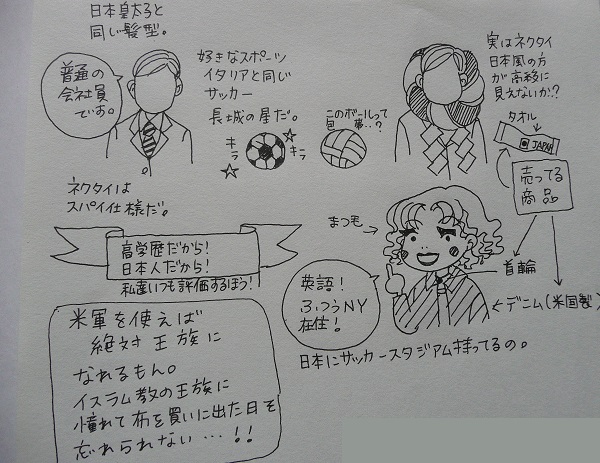 日本皇太子と
同じ髪型。
普通の
会社員
です。
好きなスポーツ
イタリアと同じ
サッカー
長城の星だ。
キラ
キラ
このボールって
包帯‥?
実はネクタイ
日本風の方
が高移に
見えないか?
タオル
JAPAN
売ってる
商品
ネクタイは
スパイ仕様だ。
高学歴だから!
日本人だから!
私達いつも評価するぼう!
まつ毛
英語!
ふつうNY
在住!
首輪
デニム(米国製)
日本にサッカースタジアム持ってるの。
米軍を使えば
絶対王族に
なれるもん。
イスラム教の王族に
憧れて布を買いに出た日を
忘れられない…!!